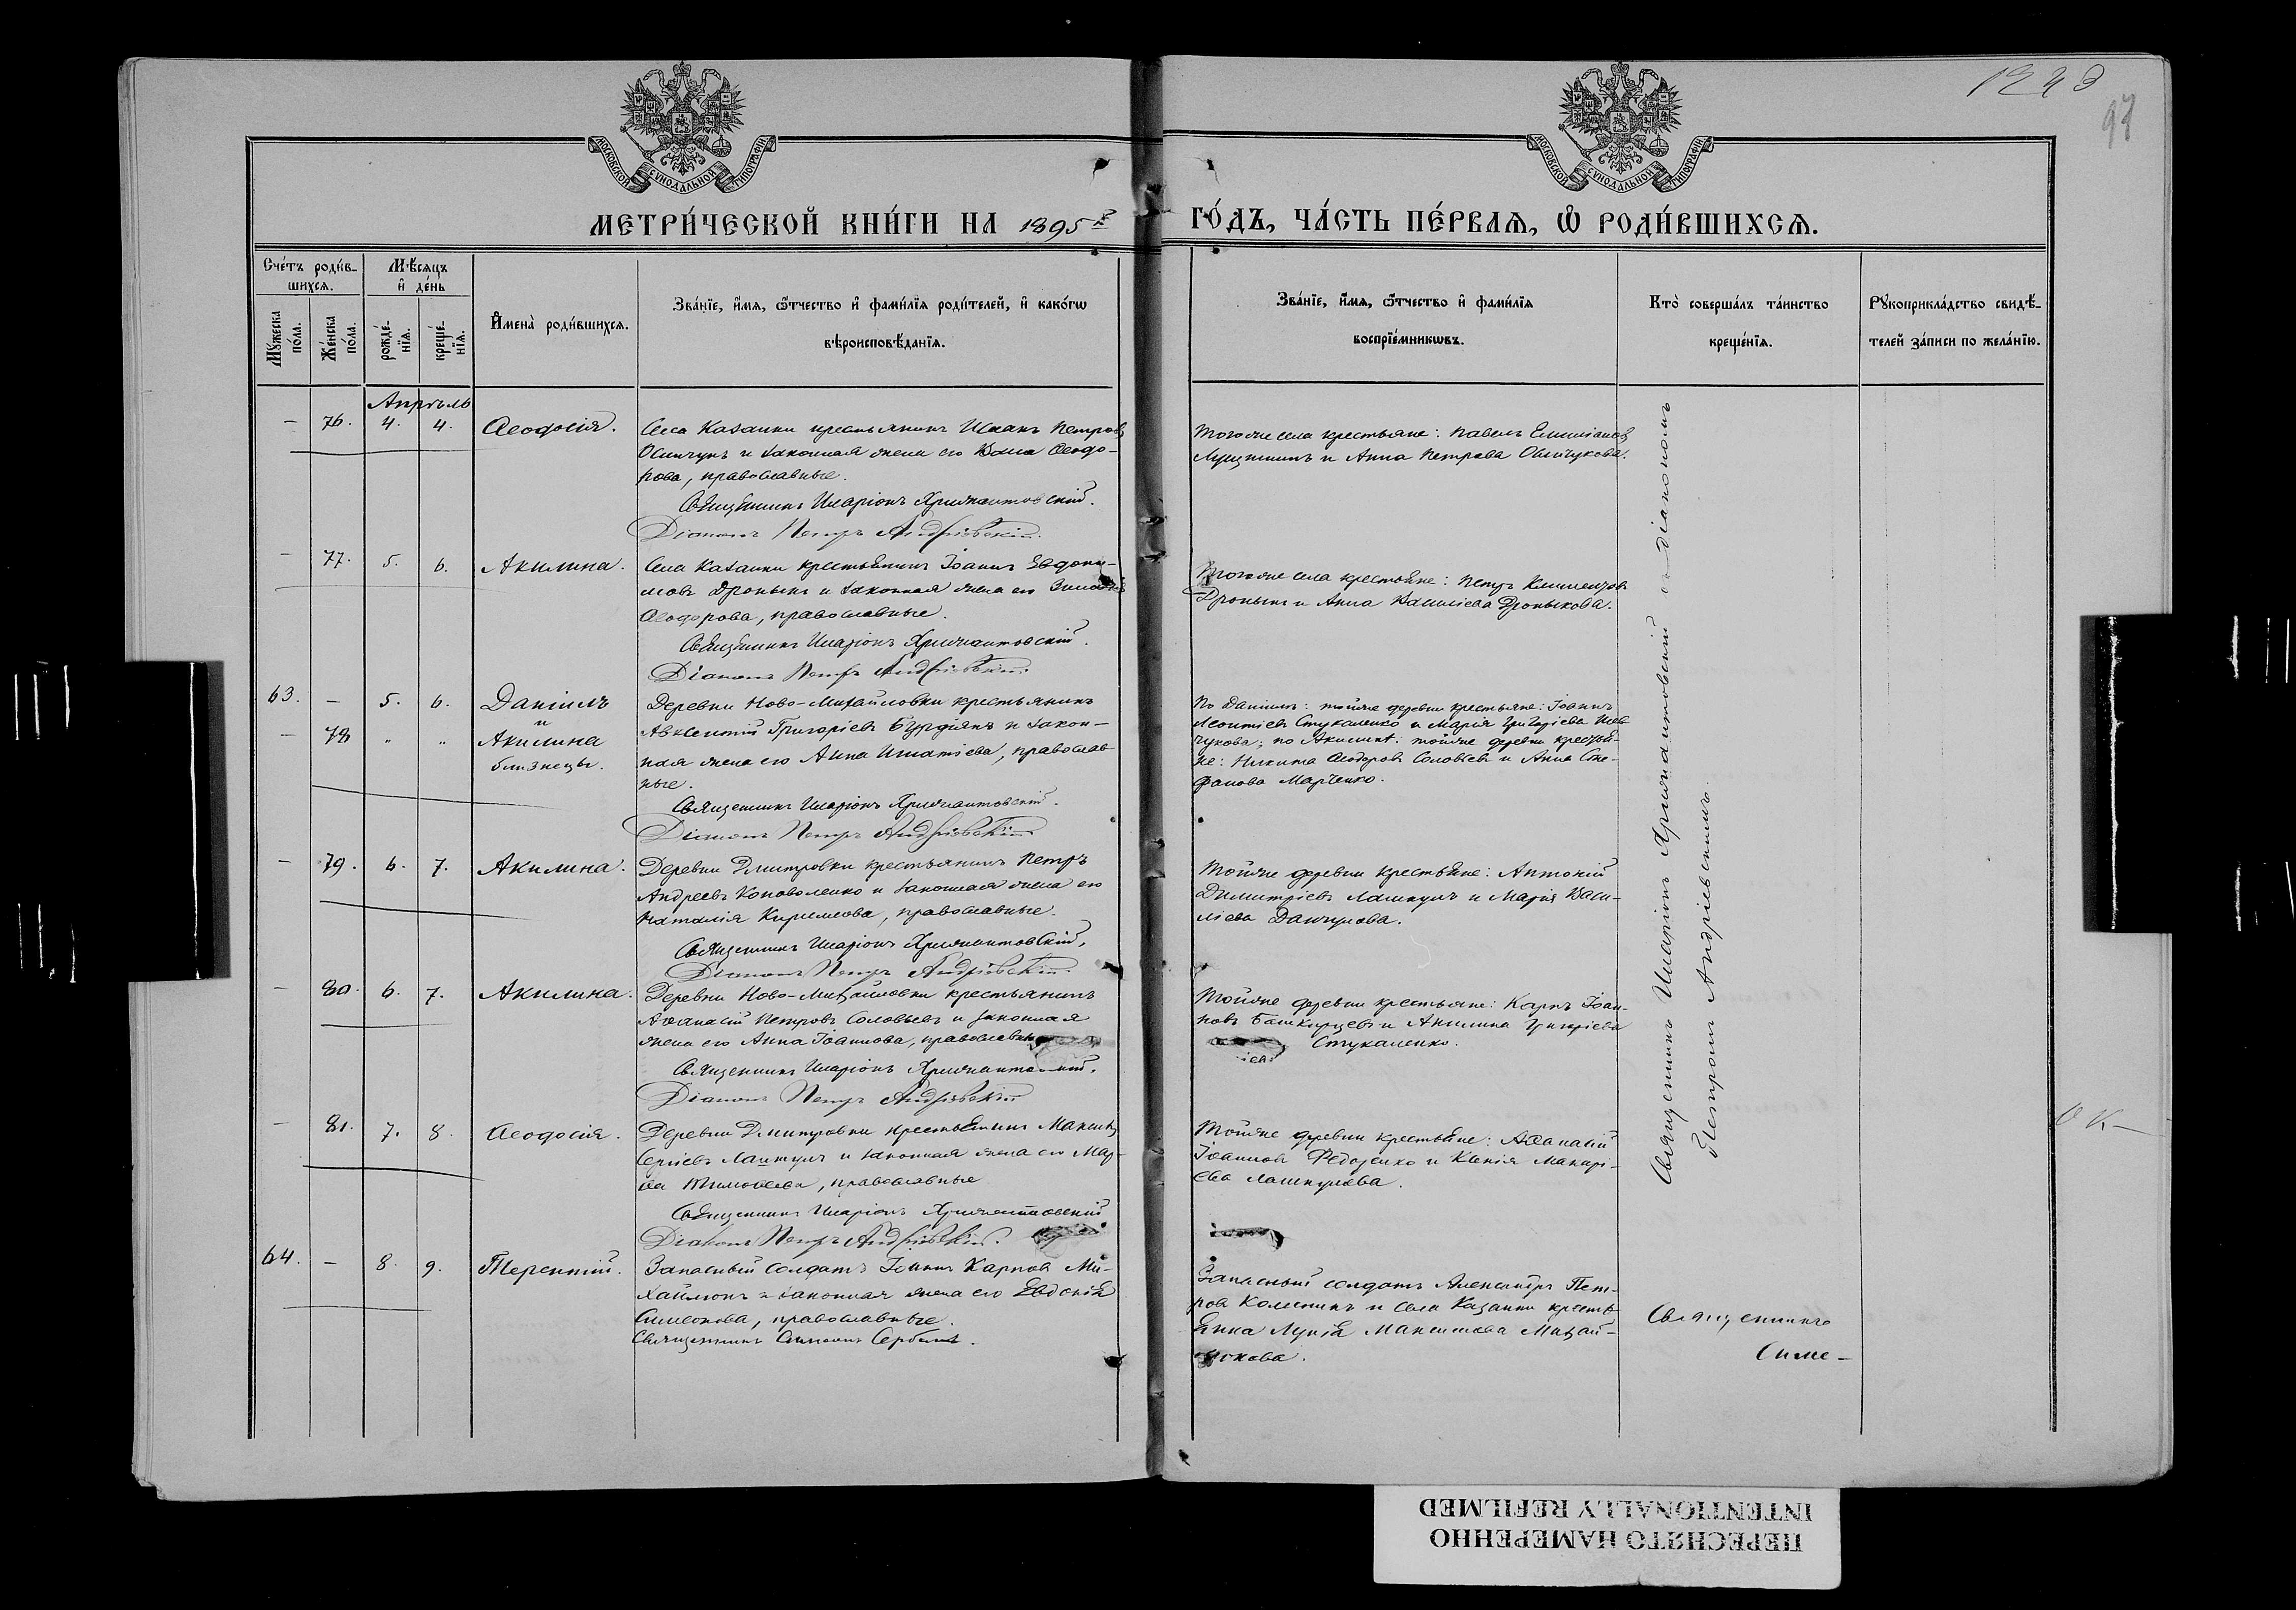 1223
97
МОСКОВСКОЙ СУНОДАЛЬНОЙ ТИПОГРАФІИ
МОСКОВСКОЙ СУНОДАЛЬНОЙ ТИПОГРАФІИ
МЕТРИ́ЧЕСКОЙ КНИ́ГИ НА 1895 й ГО́ДЪ, ЧА́СТЬ ПЕ́РВАЯ, Ѽ РОДИ́ВШИХСЯ.
Сче́тъ роди́в-
шихся.
Мѣ́сяцъ
и҆ де́нь
Мꙋ́жеска
по́ла.
Же́нска
по́ла.
рожде́-
нїя.
креще́-
нїя.
И҆мена̀ роди́вшихся.
Зва́нїе, и҆́мя, ѻ҆́тчество и҆ фами́лїя роди́телей, и҆ како́гѡ
вѣроисповѣ́данїя.
Зва́нїе, и҆́мя, ѻ҆́тчество и҆ фами́лїя
воспрїе́мникѡвъ.
Кто̀ соверша́лъ та́инство
креще́нїя.
Рꙋкоприкла́дство свидѣ́-
телей за́писи по жела́нїю.
Апрѣль
— 76. 4. 4. Ѳеодосія.
Села Казанки крестьянинъ Исаакъ Петровъ
Осипчукъ и законная жена его Васса Ѳеодо-
рова, православные.
Священникъ Иларіонъ Хрисанфовскій.
Діаконъ Петръ Андріевскій.
Тогоже села крестьяне: Павелъ Емиліановъ
и Анна Петрова Осипчукова.
— 77. 5. 6. Акилина.
Села Казанки крестьянинъ Іоаннъ Евдоки-
мовъ Дроныкъ и законная жена его
Ѳеодорова, православные.
Священникъ Иларіонъ
Діаконъ Петръ Андріевскій.
Тогоже села крестьяне: Петръ Климентовъ
Дроныкъ и Анна Василіева Дроныкова.
63. — 5. 6. Даніилъ
и
— 78 „ „ Акилина
близнецы.
Деревни Ново-Михайловки крестьянинъ
Авксентій Григоріевъ Бурдіянъ и закон-
ная жена его Анна Игнатіева, православ
ные.
Священникъ Иларіонъ
Діаконъ Петръ Андріевскій
По Даніилѣ: тойже деревни крестьяне: Іоаннъ
Леонтіевъ Стукаленко и Марія Григоріева Шев
чукова; по Акилинѣ: тойже деревни крестья-
не: Никита Ѳеодоровъ Соловьевъ и Анна Сте-
фанова Марченко.
— 79. 6. 7. Акилина.
Деревни Дмитровки крестьянинъ Петръ
Андреевъ Коноваленко и законная жена его
Наталія Кириллова, православные.
Священникъ Иларіонъ
Діаконъ Петръ Андріевскій.
Тойже деревни крестьяне: Антоній
Димитріевъ Лашкулъ и Марія Васи-
ліева
— 80. 6. 7. Акилина.
Деревни Ново-Михайловки крестьянинъ
Аѳанасій Петровъ Соловьевъ и законная
жена его Анна Іоаннова, православные
Священникъ Иларіонъ
Діаконъ Петръ Андріевскій
Тойже деревни крестьяне: Карпъ Іоан-
новъ Башкирцевъ и Акилина Григоріева
Стукаленко.
— 81. 7. 8. Ѳеодосія.
Деревни Дмитровки крестьянинъ Максимъ
Сергіевъ Лашкулъ и законная жена его Мар-
ѳа Тимоѳеева, православные
Священникъ Иларіонъ
Діаконъ Петръ Андріевскій.
Тойже деревни крестьяне: Аѳанасій
Іоанновъ Федоренко и Ксенія Макарі-
ева Лашкулева.
ОК—
64. — 8. 9. Терентій.
Запасный солдатъ Іоаннъ Карповъ Ми-
хайлюкъ и законная жена его Евдокія
Симеонова, православные.
Священникъ Симеонъ
Запасный солдатъ Александръ Пет-
ровъ и села Казанки кресть-
янка Лукія Максимова Михай-
люкова.
Священникъ Иларіонъ Хрисанфовскій съ діакономъ
Петромъ Андріевскимъ.
Священникъ
Симе-
ПЕРЕСНЯТО НАМЕРЕННО
INTENTIONALLY REFILMED